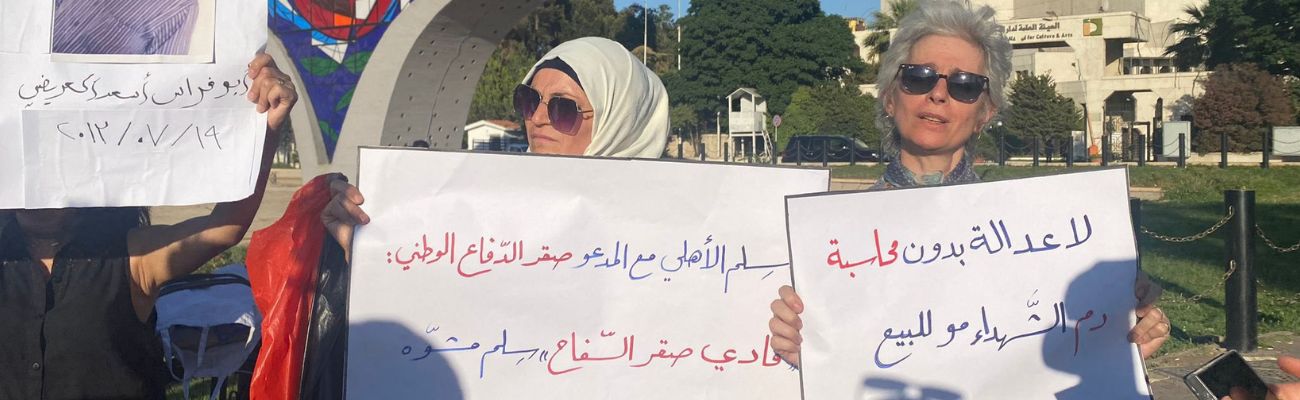 أبو فراس أسعد العريضي
٢٠١٢/٠٧/١٩
سِلم الأهلي مع المدعو صقر الدّفاع الوطني:
"فادي صقر السّفاح" سِلم مشوّه
لا عدالة بدون محاسبة
دم الشّهداء مو للبيع
الهيئة العامة
for Culture & Arts